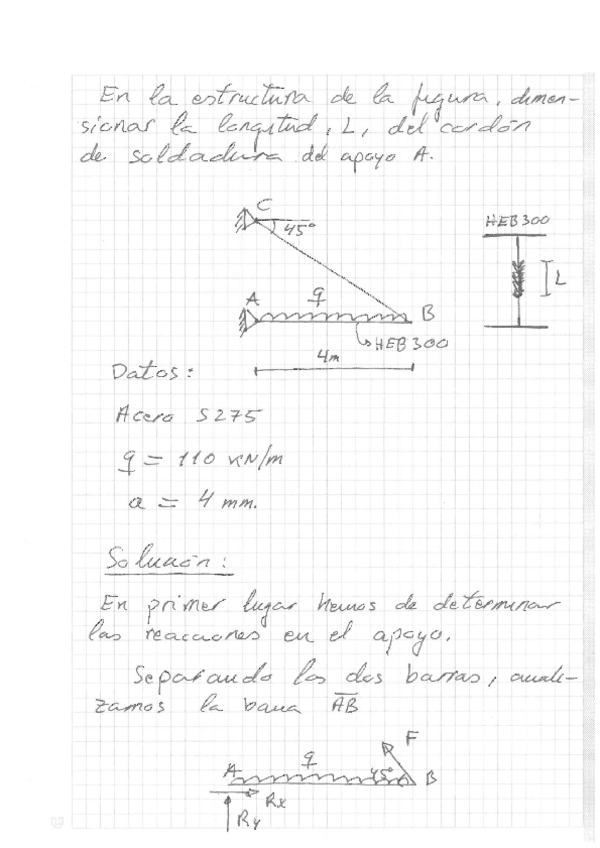 En la estructura de la figura, dimen-
sionar la longitud, L, del cordón
de soldadura del apoyo A.
C
45°
HEB 300
L
A
q
B
HEB 300
4m
Datos:
Acero S275
q = 110 kN/m
a = 4 mm.
Solución:
En primer lugar hemos de determinar
las reacciones en el apoyo.
Separando las dos barras, anali-
zamos la barra AB
F
q
A
45°
B
Rx
Ry